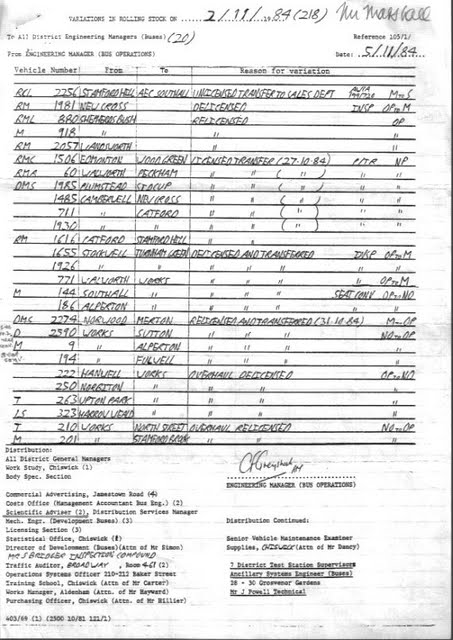 VARIATIONS IN ROLLING STOCK ON 2/11/1984 (218) Mr Marshall
To All District Engineering Managers (Buses) (20) Reference 105/1/
From ENGINEERING MANAGER (BUS OPERATIONS) Date: 5/11/84
Vehicle Number From To Reason for variation
RCL 2256 STAMFORD HILL AEC SOUTHALL UNLICENSED TRANSFER TO SALES DEPT M to S
RM 1981 NEW CROSS DELICENSED INSP OP to M
RML 880 SHEPHERDS BUSH RELICENSED OP
M 918 " " "
RM 2057 WANDSWORTH " "
RMC 1506 EDMONTON WOOD GREEN LICENSED TRANSFER (27-10-84) P/TR NP
RMA 60 WALWORTH PECKHAM " " ( " ) " "
DMS 1985 PLUMSTEAD SIDCUP " " ( " ) " "
1485 CAMBERWELL NEW CROSS " " ( " ) " "
711 " CATFORD " " ( " ) " "
1930 " " " " ( " ) " "
RM 1616 CATFORD STAMFORD HILL " "
1655 STOCKWELL TURNHAM GREEN DELICENSED AND TRANSFERRED INSP OP to M
1926 " " " " " "
771 WALWORTH WORKS " " " OP to M
M 144 SOUTHALL " " " SEAT CONV OP to NO
186 ALPERTON " " " " "
DMS 2274 NORWOOD MERTON RELICENSED AND TRANSFERRED (31-10-84) M to OP
D 2590 WORKS SUTTON " " NO to OP
M 9 " ALPERTON " " "
194 " FULWELL " " "
222 HANWELL WORKS OVERHAUL DELICENSED OP to NO
250 NORBITON " " " "
T 263 UPTON PARK " " " "
LS 323 HARROW WEALD " " " "
T 210 WORKS NORTH STREET OVERHAUL RELICENSED NO to OP
M 201 " STAMFORD BROOK " " "
Distribution:
All District General Managers
Work Study, Chiswick (1)
Body Spec. Section
ENGINEERING MANAGER (BUS OPERATIONS)
Commercial Advertising, Jamestown Road (4)
Costs Office (Management Accountant Bus Eng.) (2)
Scientific Adviser (2), Distribution Services Manager
Mech. Engr. (Development Buses) (3) Distribution Continued:
Licensing Section (3)
Statistical Office, Chiswick Senior Vehicle Maintenance Examiner
Director of Development (Buses)(Attn of Mr Simon) Supplies, CHISWICK (Attn of Mr Dancy)
Mr S BRIDGER INSPECTORS COMPOUND
Traffic Auditor, BROADWAY, Room 461 (2) 7 District Test Station Supervisors
Operations Systems Officer 210-212 Baker Street Ancillary Systems Engineer (Buses)
Training School, Chiswick (Attn of Mr Carter) 28 - 30 Grosvenor Gardens
Works Manager, Aldenham (Attn of Mr Hayward) Mr J Powell Technical
Purchasing Officer, Chiswick (Attn. of Mr Hillier)
403/69 (1) (2500 10/81 121/1)